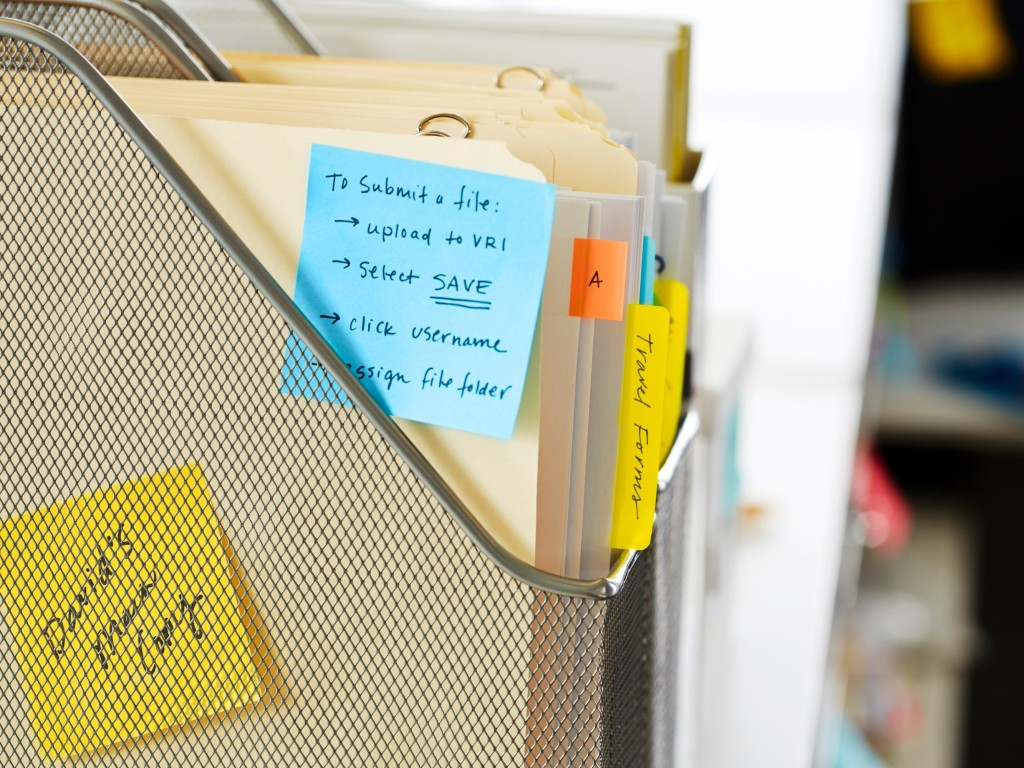 To Submit a file:
→ upload to VRI
→ Select SAVE
→ click username
→ assign file folder
A
Travel Forms
David's